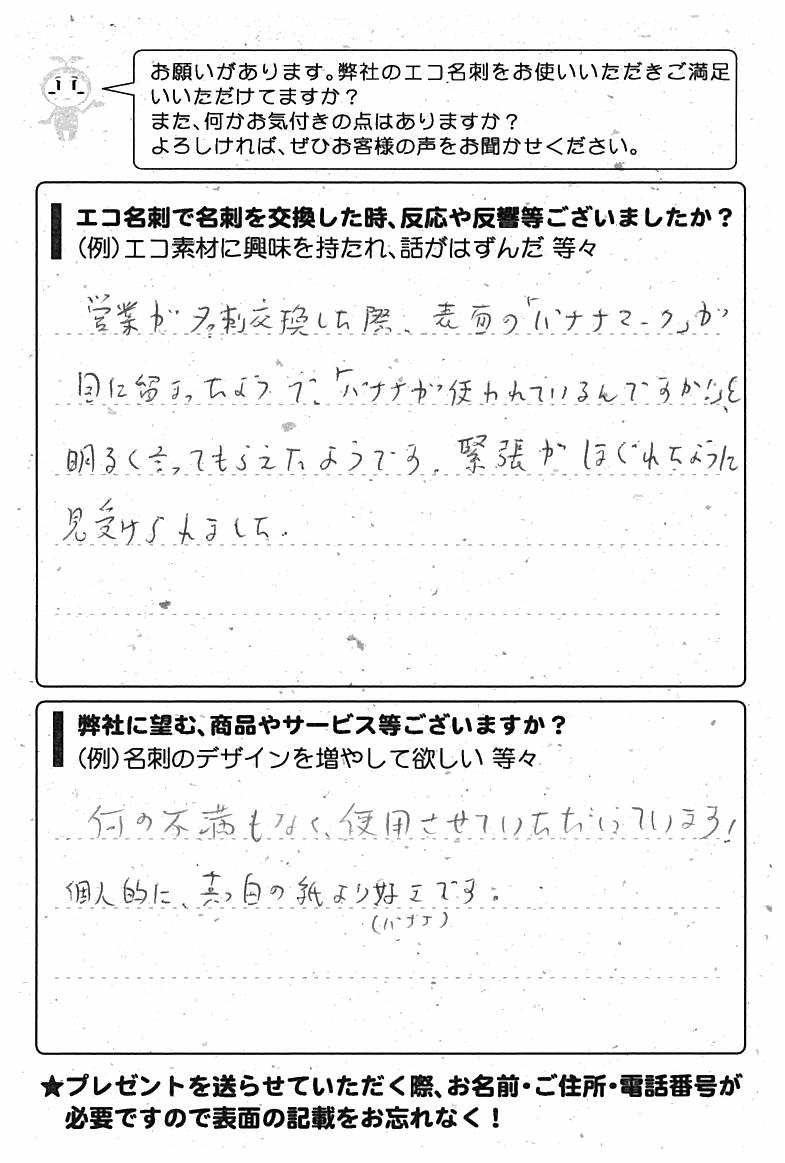 お願いがあります。弊社のエコ名刺をお使いいただきご満足
いいただけてますか？
また、何かお気付きの点はありますか？
よろしければ、ぜひお客様の声をお聞かせください。
エコ名刺で名刺を交換した時、反応や反響等ございましたか？
（例）エコ素材に興味を持たれ、話がはずんだ 等々
営業が名刺交換した際、表面の「バナナマーク」が
目に留まったようで、「バナナが使われているんですか！」と
明るく言ってもらえたようです。緊張がほぐれたように
見受けられました。
弊社に望む、商品やサービス等ございますか？
（例）名刺のデザインを増やして欲しい 等々
何の不満もなく、使用させていただいています！
個人的に、真っ白の紙より好きです。
（バナナ）
★プレゼントを送らせていただく際、お名前・ご住所・電話番号が
必要ですので表面の記載をお忘れなく！